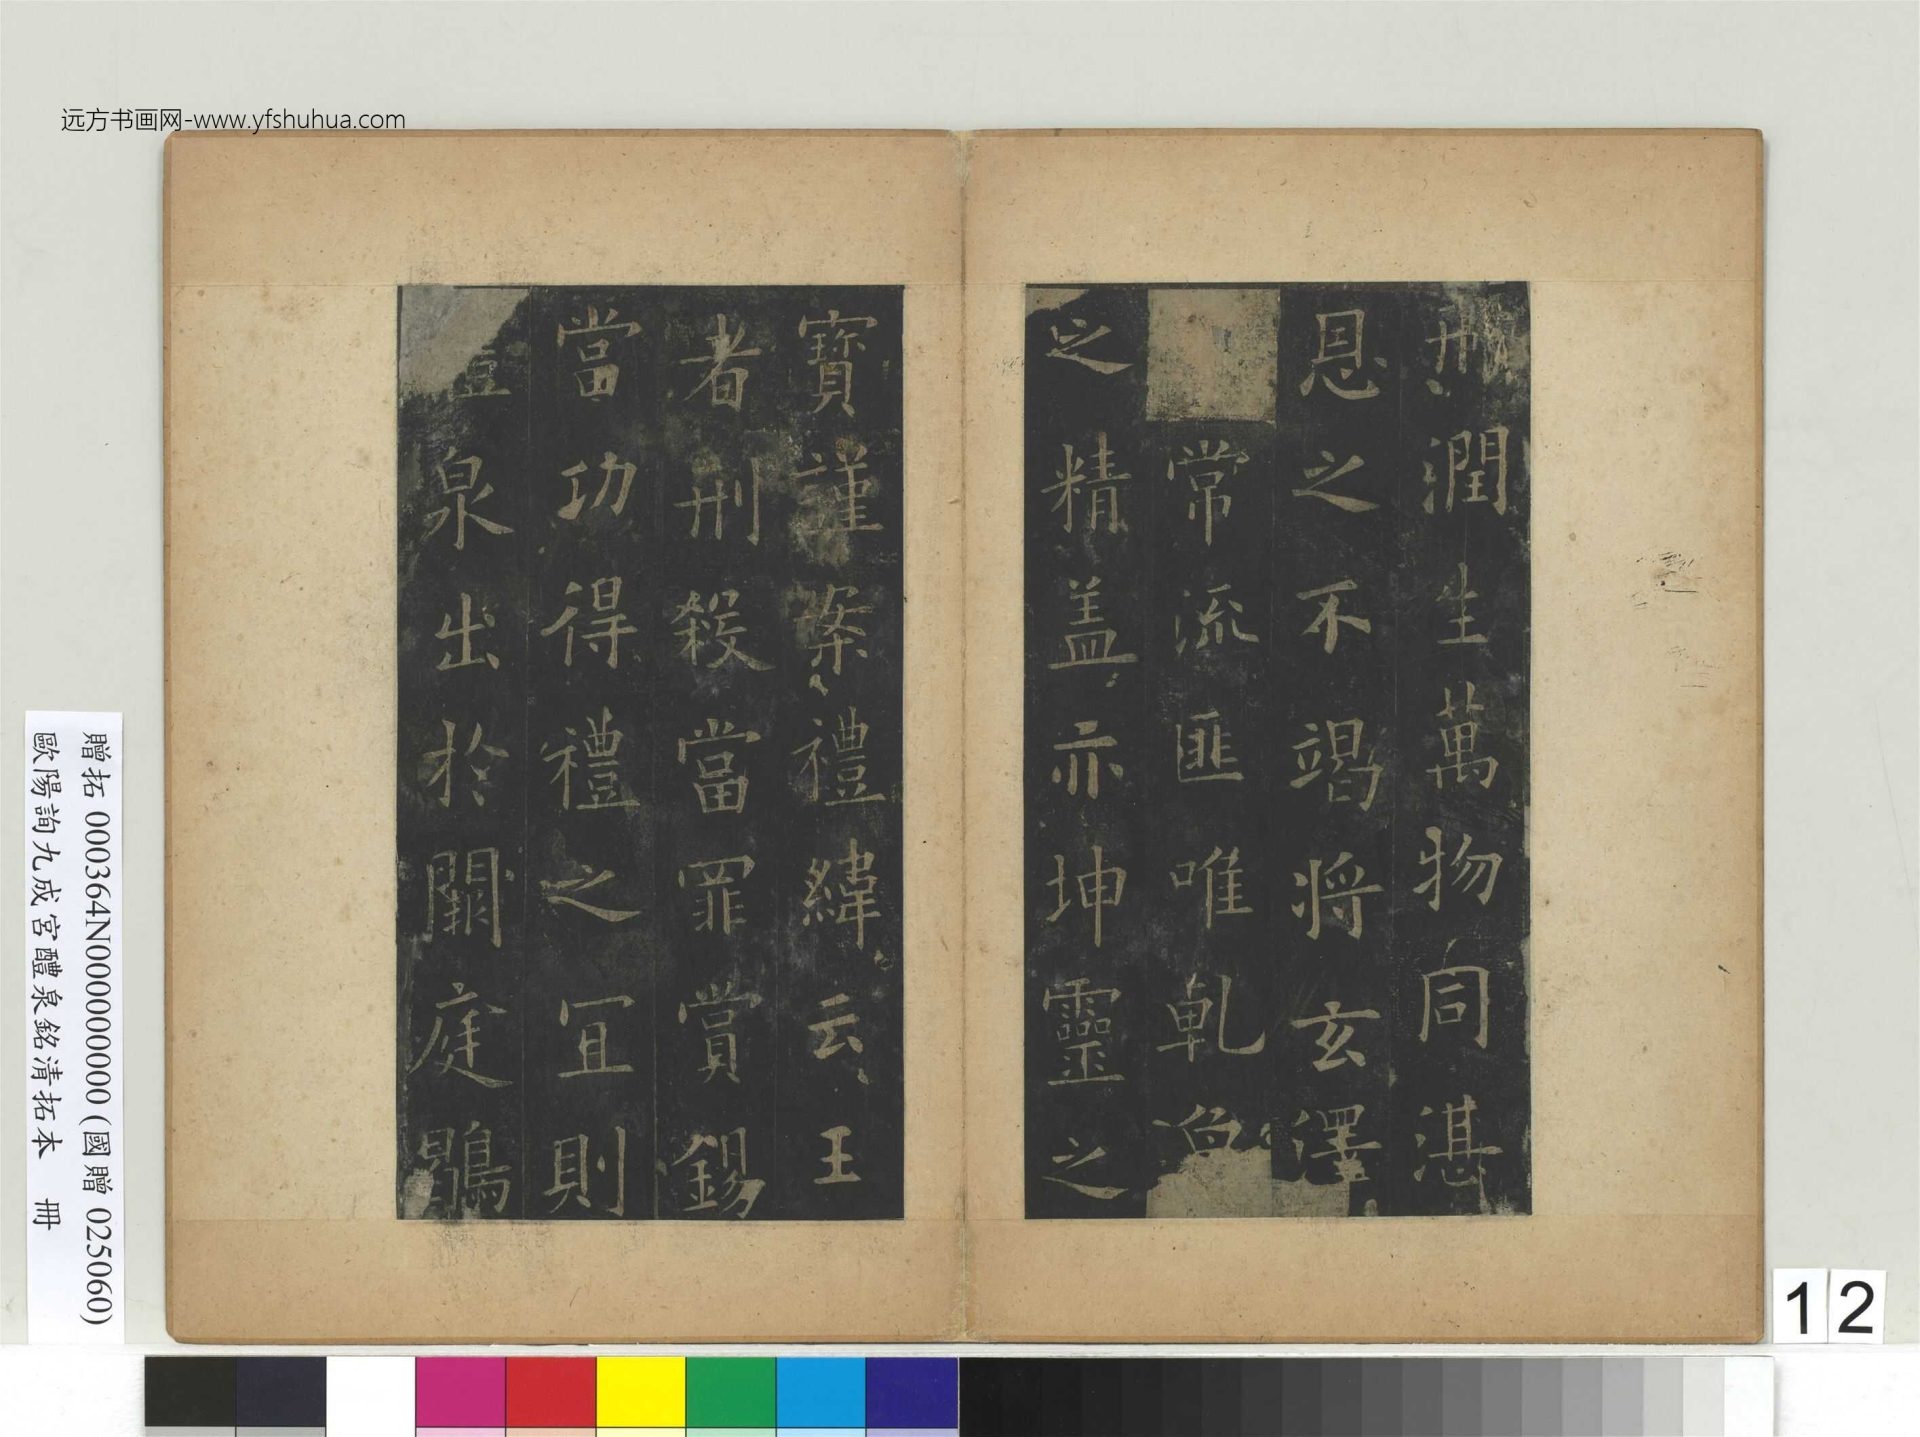 远方书画网-www.yfshuhua.com
形潤生萬物同湛
恩之不竭将玄澤
常流匪唯乹象
之精盖亦坤靈之
寶謹案禮緯云王
者刑殺當罪賞錫
當功得禮之冝則
泉出於闕庭鶡
贈拓 000364N000000000 (國贈 025060)
歐陽詢九成宮醴泉銘清拓本 冊
12